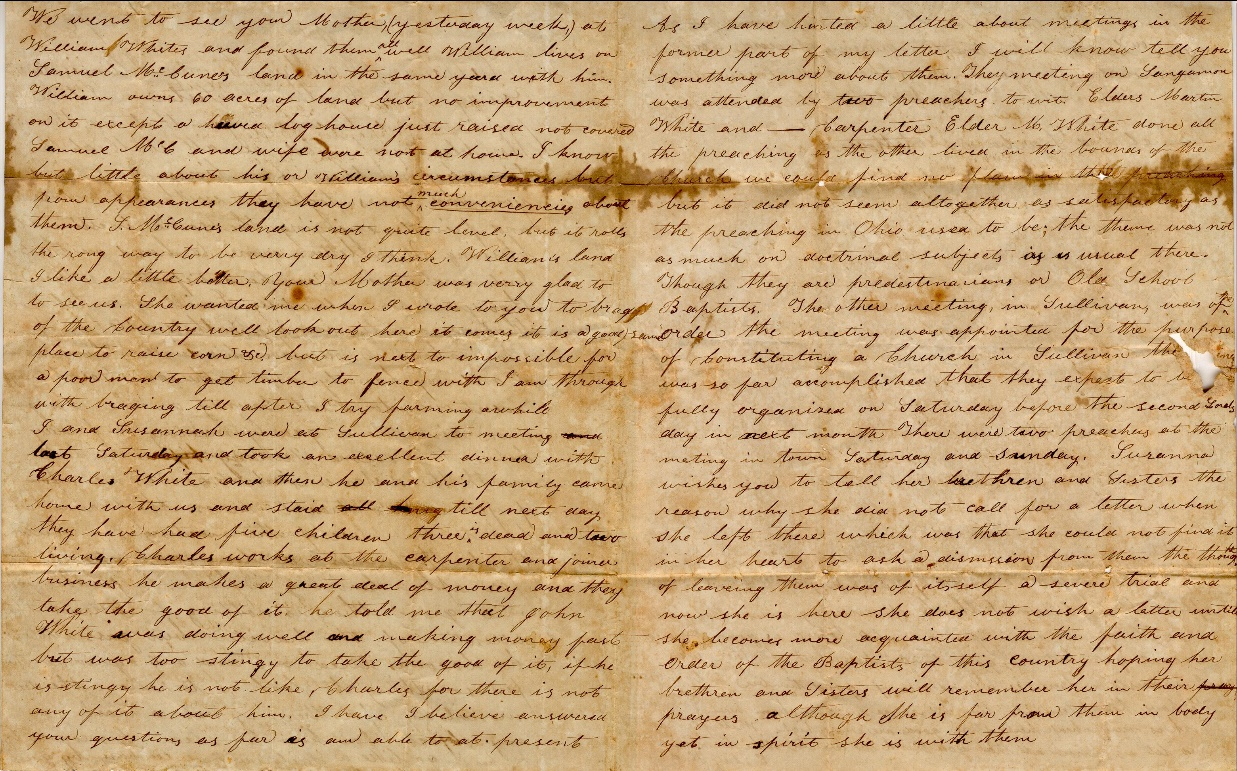 We went to see your Mother, (yesterday week,) at
William Whites and found them all well William lives on
Samuel McCunes land in the same yard with him.
William owns 60 acres of land but no improvement
on it except a hewed log house just raised not covered
Samuel McC and wife were not at home. I know
but little about his or William's circumstances but
from appearances they have not much conveniencies about
them. S. McCunes land is not quite level, but it rolls
the rong way to be verry dry I think. William's land
I like a little better. Your Mother was verry glad to
to see us. She wanted me when I wrote to you to brag
of the Country well look out here it comes it is a good
place to raise corn &c, but is next to impossible for
a poor man to get timber to fence with I am through
with braging till after I try farming awhile
I and Susannah were at Sullivan to meeting and
last Saturday and took an excellent dinner with
Charles White and then he and his family came
home with us and staid all till next day
they have had five children three is dead and two
living. Charles works at the carpenter and joiner
business he makes a great deal of money and they
take the good of it. he told me that John
White was doing well and making money fast
but was too stingy to take the good of it, if he
is stingy he is not like Charles for there is not
any of it about him. I have I believe answered
your questions as far as am able to at present
As I have hinted a little about meetings in the
former part of my letter I will know tell you
something more about them. They meeting on Sangamon
was attended by two preachers to wit. Elders Martin
White and — Carpenter Elder M. White done all
the preaching as the other lived in the bounds of the
Church we could find no flaw in the preaching
but it did not seem altogether as satisfactory as
the preaching in Ohio used to be; the theme was not
as much on doctrinal subjects as is usual there.
Though they are predestinarians or Old School
Baptists. The other meeting, in Sullivan, was of the
same order the meeting was appointed for the purpose
of Constituting a Church in Sullivan the
was so far accomplished that they expect to b
fully organized on Saturday before the second Lords
day in next month There were two preachers at the
meting in town Saturday and Sunday. Suzanna
wishes you to tell her brethren and Sisters the
reason why she did not call for a letter when
she left there which was that she could not find it
in her hearts to ask a dismssion from them the though
of leaveing them was of itself a severe trial and
now she is here she does not wish a letter until
she becomes more acquainted with the faith and
order of the Baptists of this country hoping her
brethren and Sisters will remember her in their
prayers although She is far from them in body
yet in spirit she is with them